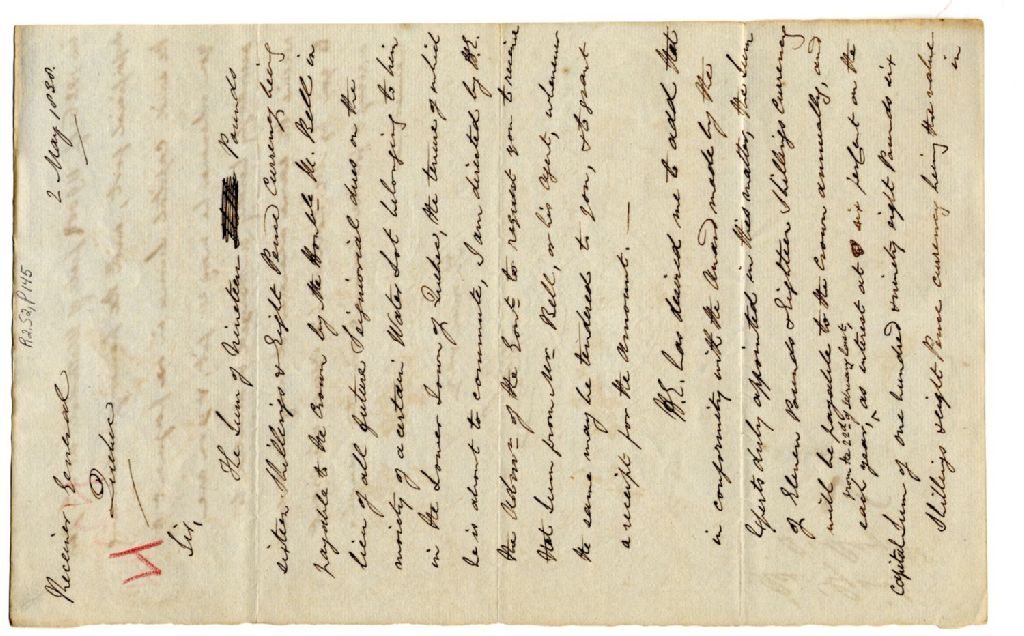 2 May 1830.
R252, P145
Receiver General
Quebec
Sir,
The Sum of Nineteen Pounds
sixteen Shillings & Eight Pence Currency being
payable to the Crown by the Honble M. Bell in
lieu of all future Seigniorial dues on the
moiety of a certain Water Lot belonging to him
in the Lower Town of Quebec, the tenure of which
he is about to commute, I am directed by H.E.
the Admr of the Govt to request you to receive
that sum from Mr Bell, or his agent, whenever
the same may be tendered to you, & to grant
a receipt for the Amount. —
H.E. has desired me to add that
in conformity with the Award made by the
Experts duly appointed in this matter, the Sum
of Eleven Pounds & Eighteen Shillings Currency
will be payable to the Crown annually, and
from the 22d Jany last,
each year, as interest at six per Cent on the
Capital Sum of one hundred & ninety eight Pounds six
Shillings & eight Pence currency being the value
in